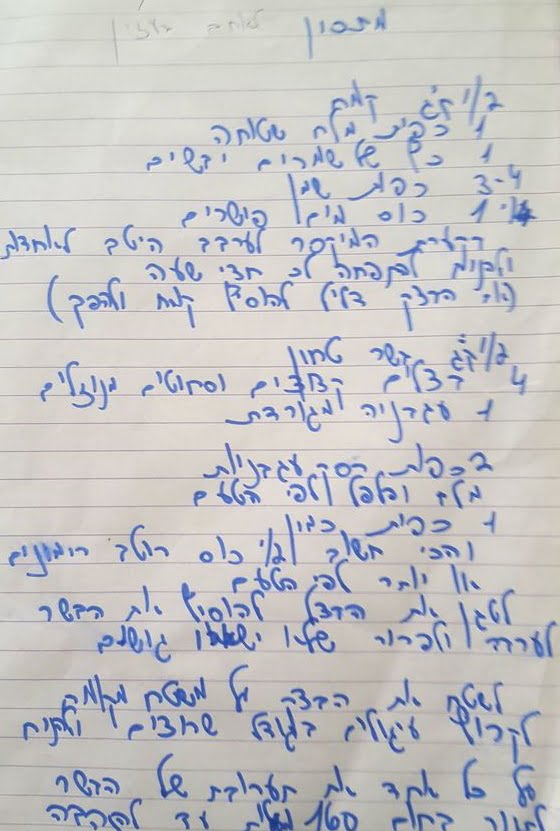 מתכון
1/2 ק״ג קמח
1 כפית מלח שטוחה
1 כף של שמרים יבשים
3-4 כפות שמן
1 כוס מים פושרים
בקערת המיקסר לערבב היטב לאחדת
ולהניח להתפחה לכ חצי שעה
(אם הבצק דליל להוסיף קמח ולהפך)
1/2 ק״ג בשר טחון
4 בצלים קצוצים וסחוטים מנוזלים
1 עגבניה מגורדת
2 כפות רסק עגבניות
מלח ופלפל לפי הטעם
1 כפית כמון
והכי חשוב 1/2 כוס רוטב רימונים
או יותר לפי הטעם
לטגן את הבצל להוסיף את הבשר
לערבב ולפרור שלא ישארו גושים
לשטח את הבצק על משטח מקומח
לקרוץ עיגולים בגודל שרוצים ולשים
על כל אחד את תערובת של הבשר
לתנור בחום 160 מעלות עד להזהבה